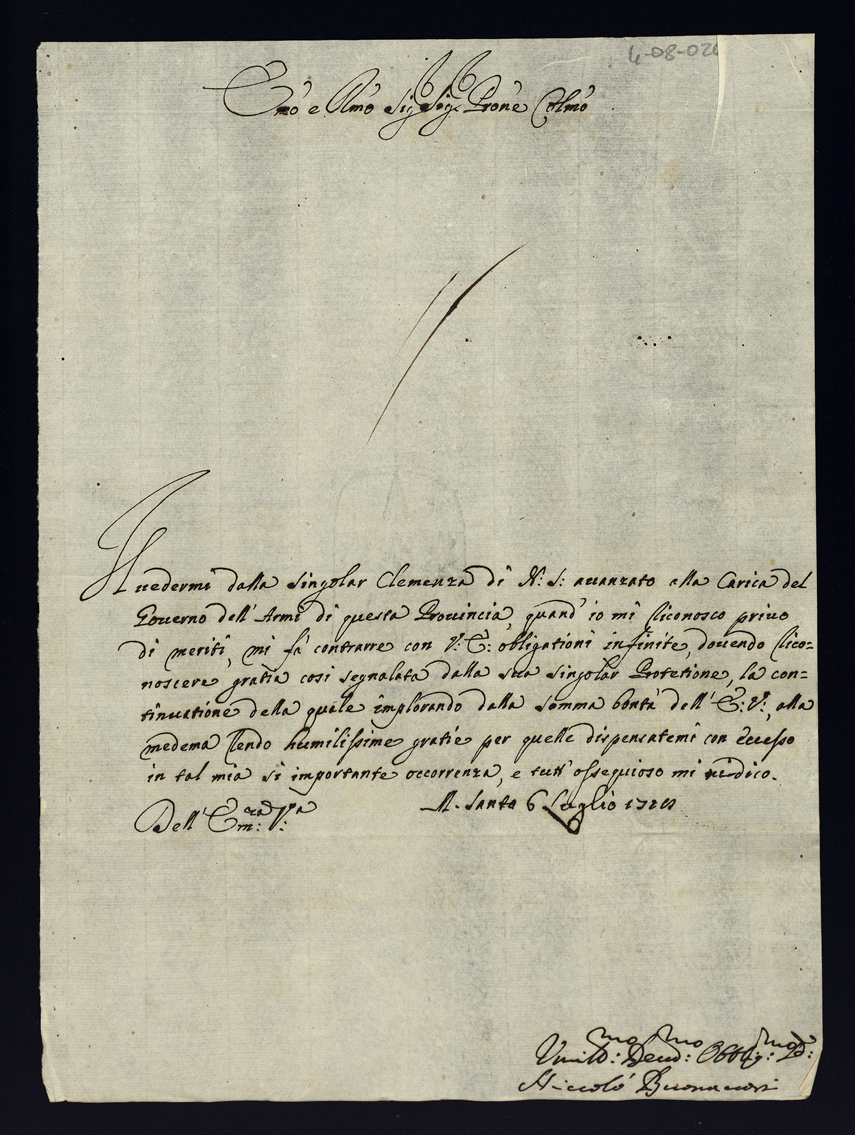 4-08-02
Em̃o e Rm̃o Sig.r Sig.r Prone Colmo
Il vedermi dalla singolar Clemenza di N: S: auanzato alla Carica del
Gouerno dell'Armi di questa Prouincia, quand'io mi riconosco priuo
di meriti, mi fà contrarre con V: E: obligationi infinite, douendo rico=
noscere gratia cosi segnalata dalla sua singolar Protetione, la con=
tinuatione della quale implorando dalla somma bontà dell'E: V:, alla
medema rendo humilissime gratie per quelle dispensatemi con eccesso
in tal mia si importante occorrenza, e tutt'ossequioso mi ridico.
Dell'Em:za V:a
M. Santo 6 Luglio
Vmil:mo Deuo:mo Obblig:mo
Niccolò Buonaccorsi